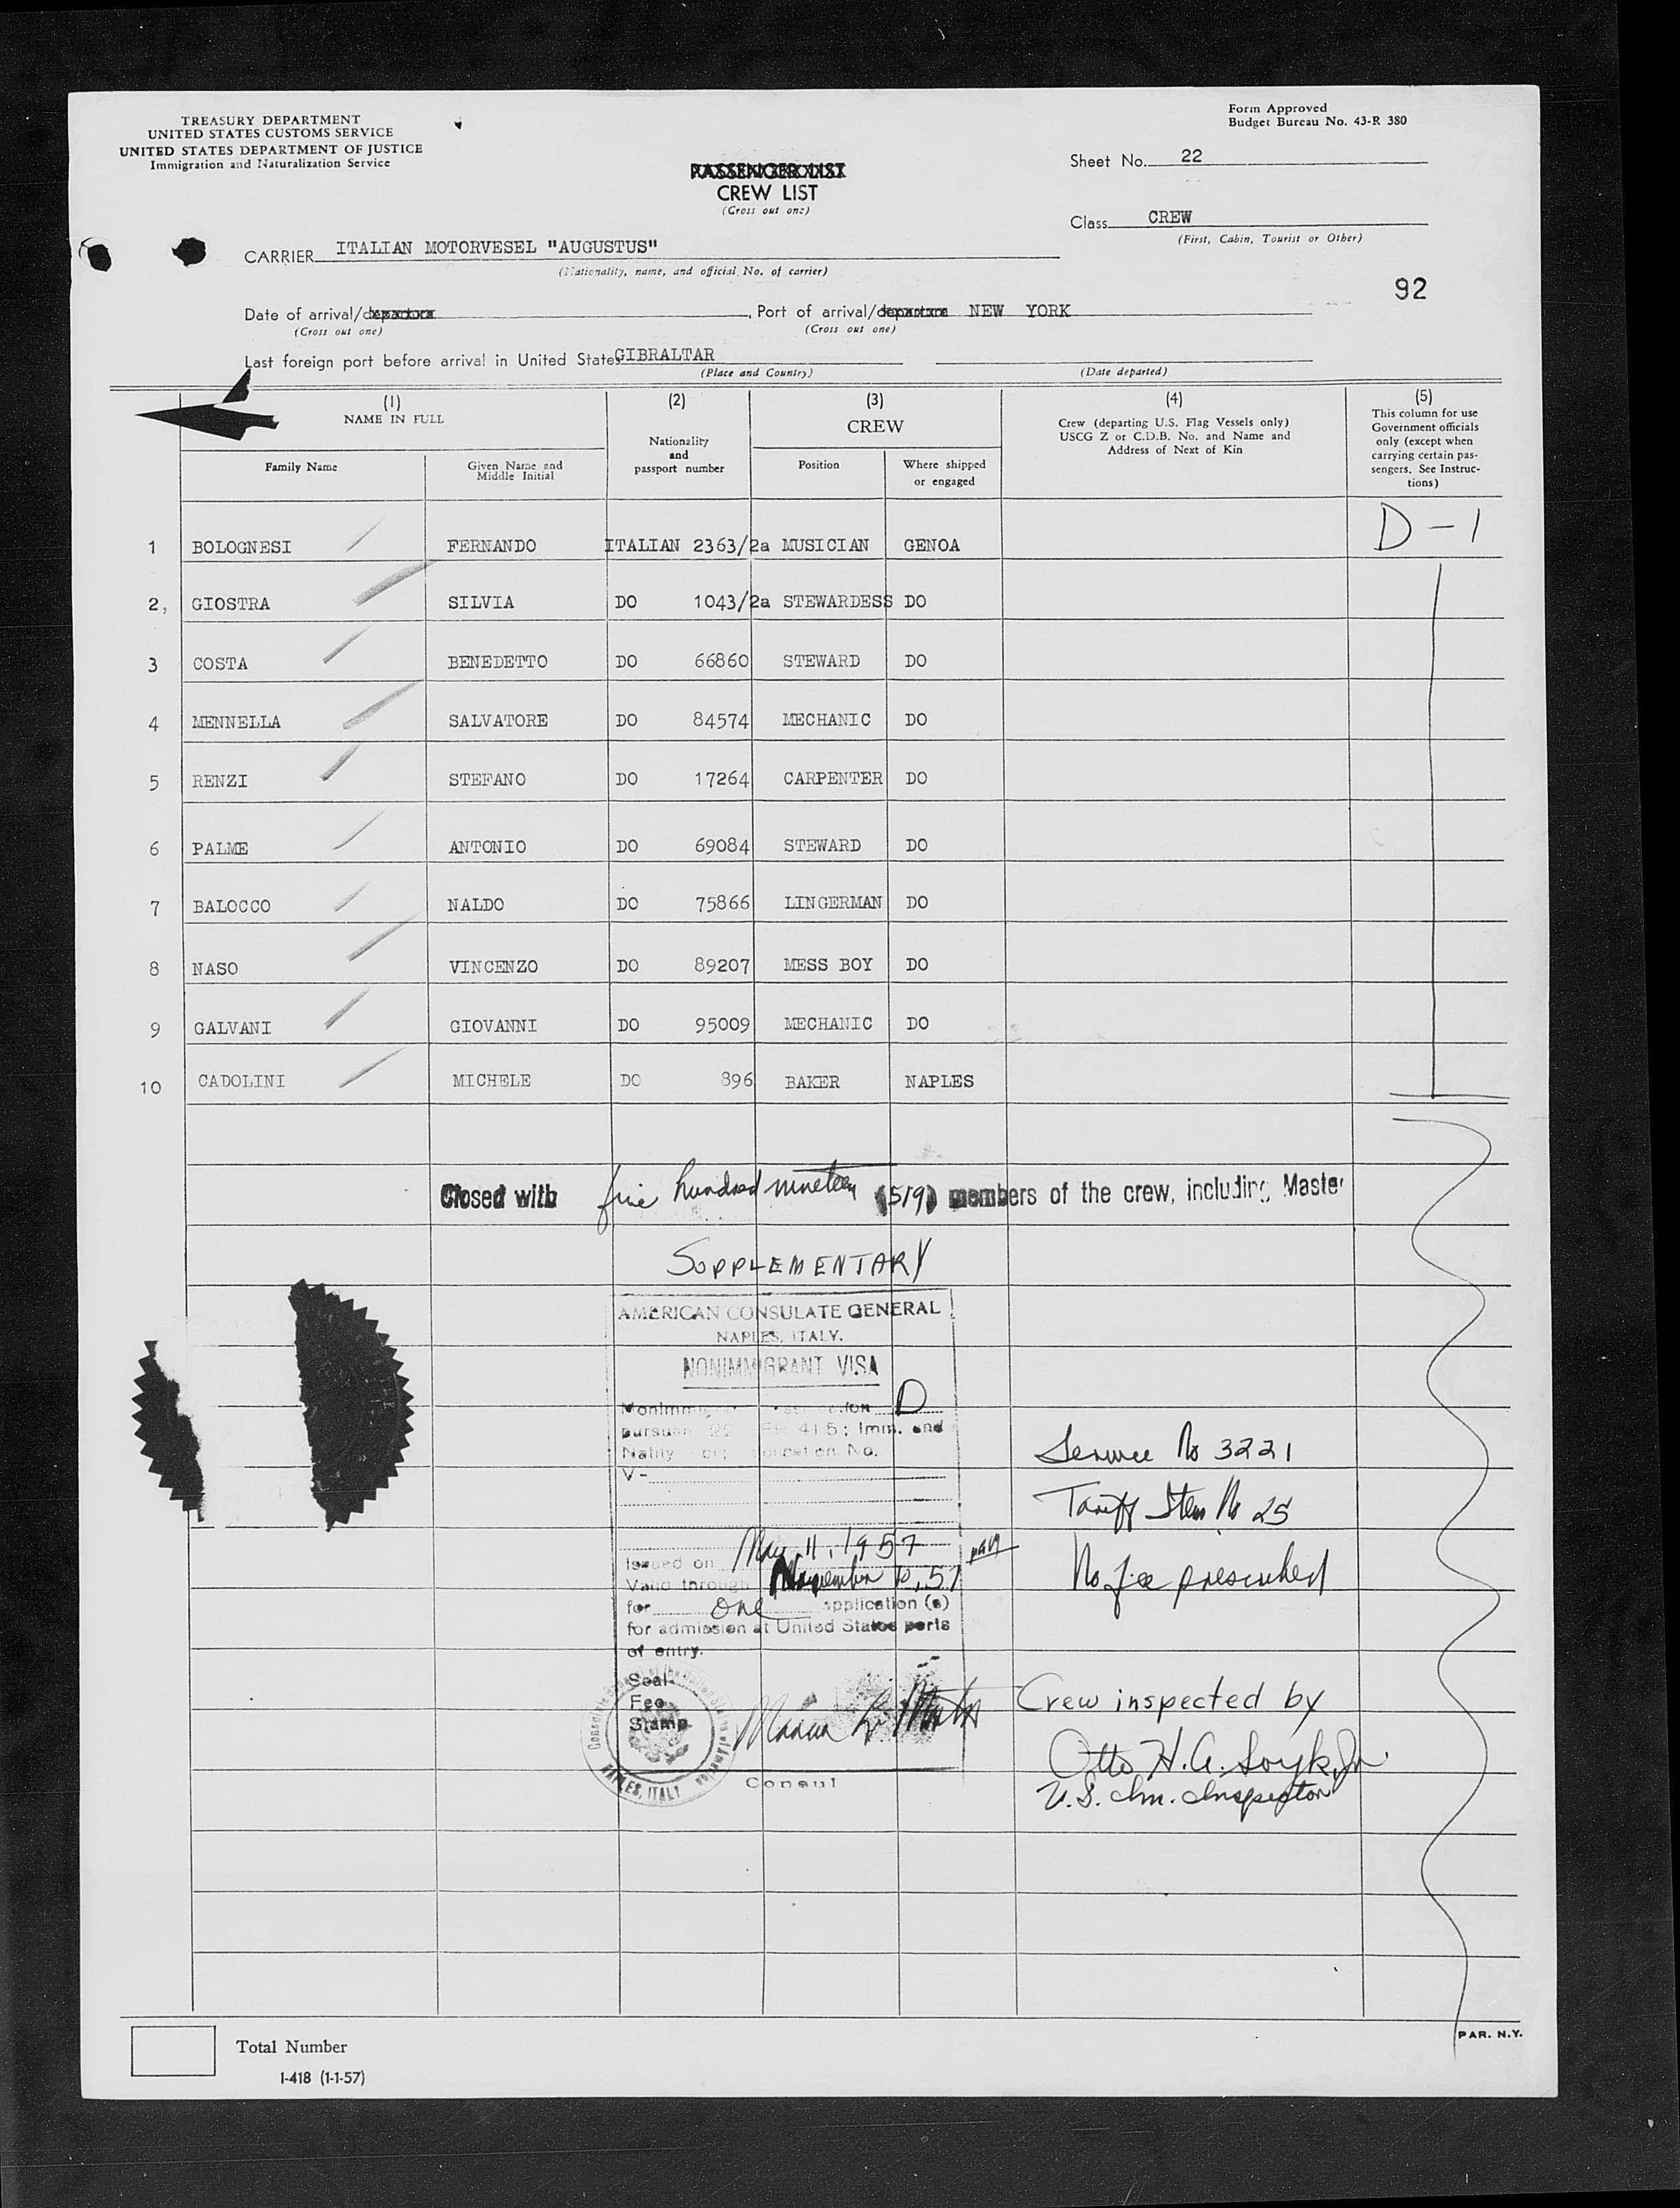 TREASURY DEPARTMENT
UNITED STATES CUSTOMS SERVICE
UNITED STATES DEPARTMENT OF JUSTICE
Immigration and Naturalization Service
Form Approved
Budget Bureau No. 43-R 380
PASSENGER LIST
CREW LIST
(Cross out one)
Sheet No. 22
Class CREW
(First, Cabin, Tourist or Other)
CARRIER ITALIAN MOTORVESEL "AUGUSTUS"
(Nationality, name, and official No. of carrier)
92
Date of arrival/departure , Port of arrival/departure NEW YORK
(Cross out one) (Cross out one)
Last foreign port before arrival in United States GIBRALTAR
(Place and Country) (Date departed)
(1) NAME IN FULL
Family Name
Given Name and Middle Initial
(2)
Nationality and passport number
(3)
CREW
Position
Where shipped or engaged
(4)
Crew (departing U.S. Flag Vessels only)
USCG Z or C.D.B. No. and Name and
Address of Next of Kin
(5)
This column for use
Government officials
only (except when
carrying certain pas-
sengers. See Instruc-
tions)
1 BOLOGNESI FERNANDO ITALIAN 2363/2a MUSICIAN GENOA D-1
2, GIOSTRA SILVIA DO 1043/2a STEWARDESS DO
3 COSTA BENEDETTO DO 66860 STEWARD DO
4 MENNELLA SALVATORE DO 84574 MECHANIC DO
5 RENZI STEFANO DO 17264 CARPENTER DO
6 PALME ANTONIO DO 69084 STEWARD DO
7 BALOCCO NALDO DO 75866 LINGERMAN DO
8 NASO VINCENZO DO 89207 MESS BOY DO
9 GALVANI GIOVANNI DO 95009 MECHANIC DO
10 CADOLINI MICHELE DO 896 BAKER NAPLES
Closed with five hundred nineteen (519) members of the crew, including Master
SUPPLEMENTARY
AMERICAN CONSULATE GENERAL
NAPLES, ITALY.
NONIMMIGRANT VISA
D
415; Imm. and
No.
V-
Issued on May 11, 1957
Valid through November 10, 57
for one application (s)
for admission at United States ports
of entry.
Seal
Fee
Stamp
NAPLES, ITALY
Consul
Service No 3221
Tariff Item No 25
No fee prescribed
Crew inspected by
Otto H. A.
U.S. Im. Inspector
Total Number
I-418 (1-1-57)
PAR. N.Y.